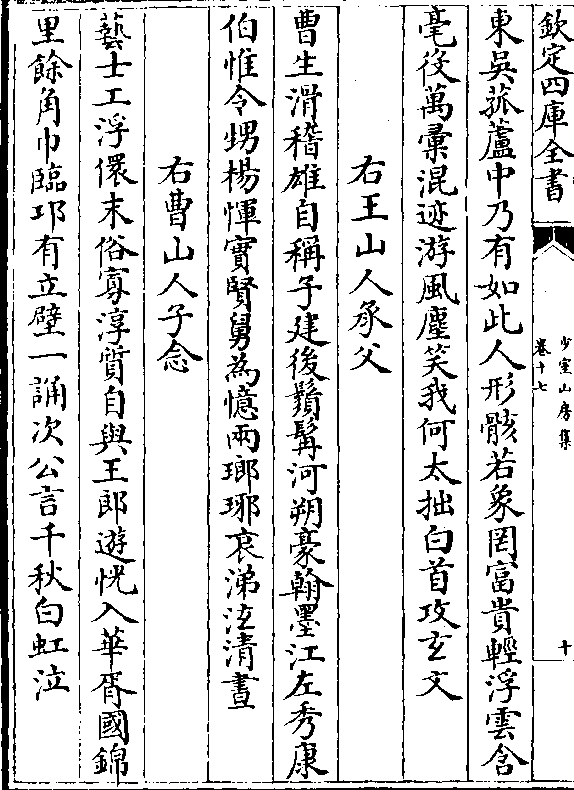 欽定四庫全書
少室山房集
卷十七
十
東吳菰蘆中乃有如此人形骸若象罔富貴輕浮雲含
毫役萬彚混迹游風塵笑我何太拙白首攻玄文
右王山人承父
曹生滑稽雄自稱子建後鬚髯河朔豪翰墨江左秀康
伯惟令甥楊惲實賢舅為憶兩瑯琊哀涕泣清晝
右曹山人子念
藝士工浮儇末俗寡淳質自與王郎遊恍入華胥國錦
里餘角巾臨邛有立壁一誦次公言千秋白虹泣